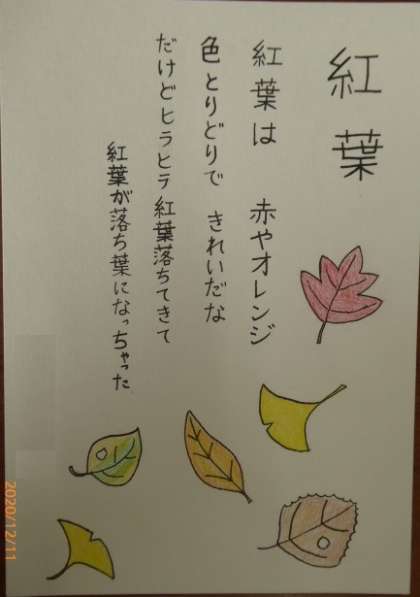 紅葉
紅葉は 赤やオレンジ
色とりどりで きれいだな
だけどヒラヒラ紅葉落ちてきて
紅葉が落ち葉になっちゃった
2020/12/11